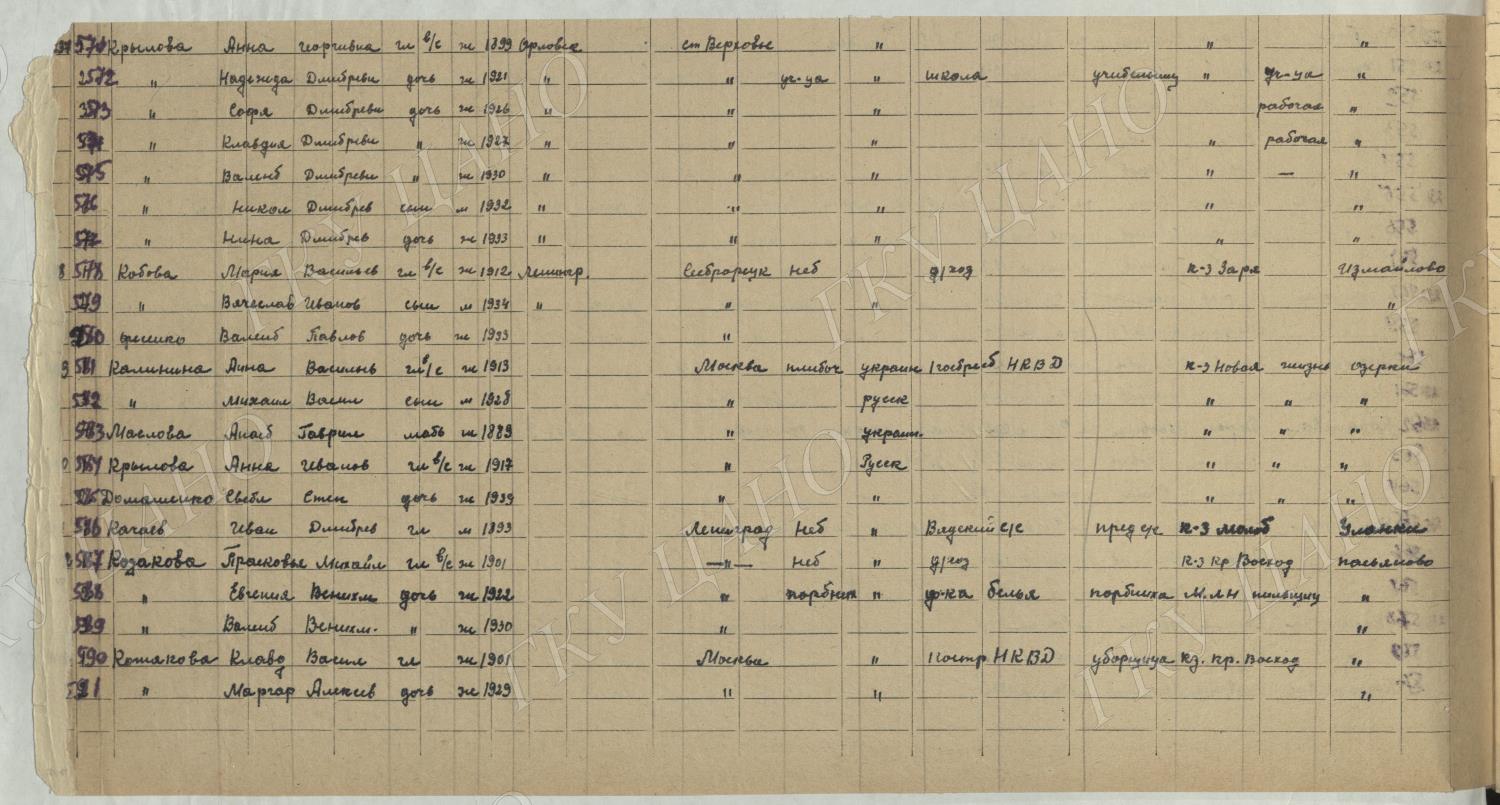 571 Крылова Анна Георгивна гл в/с ж 1899 Орловск ст Верховье " " "
572 " Надежда Дмитреви дочь ж 1921 " " уч-ца " школа учительниц " уч-ца "
573 " Софя Дмитреви дочь ж 1926 " " " рабочая "
574 " Клавдия Дмитреви " ж 1927 " " " " рабочая "
575 " Валент Дмитреви " ж 1930 " " " " — "
576 " Никол Дмитрев сын м 1932 " " " " "
577 " Нина Дмитрев дочь ж 1933 " " " " "
8 578 Мария Васильев гл в/с ж 1912 Ленингр. Сестрорецк нет д/хоз к-з Заря Измайлово
579 " Вячеслав Иванов сын м 1934 " " " "
580 Валент Павлов дочь ж 1933 "
581 Калинина Анна Василь гл в/с ж 1913 Москва украин НКВД к-з Новая жизнь Озерки
582 " Михаил Васил сын м 1928 " русск " " "
583 Маслова Гаврил мать ж 1889 " украин. " " "
584 Крылова Анна Иванов гл в/с ж 1917 " Русск " " "
585 Домашенко Светл Степ дочь ж 1939 " " " " "
586 Качаев Иван Дмитрев гл м 1893 Ленинград нет " Вядский с/с пред с/с к-з молот Уланки
587 Козакова Прасковья Михайл гл в/с ж 1901 —"— нет " д/хоз к-з Кр Восход
588 " Евгения Вениам дочь ж 1922 " портних " ф-ка белья портниха М.ЛН "
589 " Валент Вениам. " ж 1930 " "
590 Клавд Васил гл ж 1901 Москва " НКВД уборщица кз. Кр. Восход "
591 " Маргар Алексев дочь ж 1929 " " "
ГКУ ЦАНО